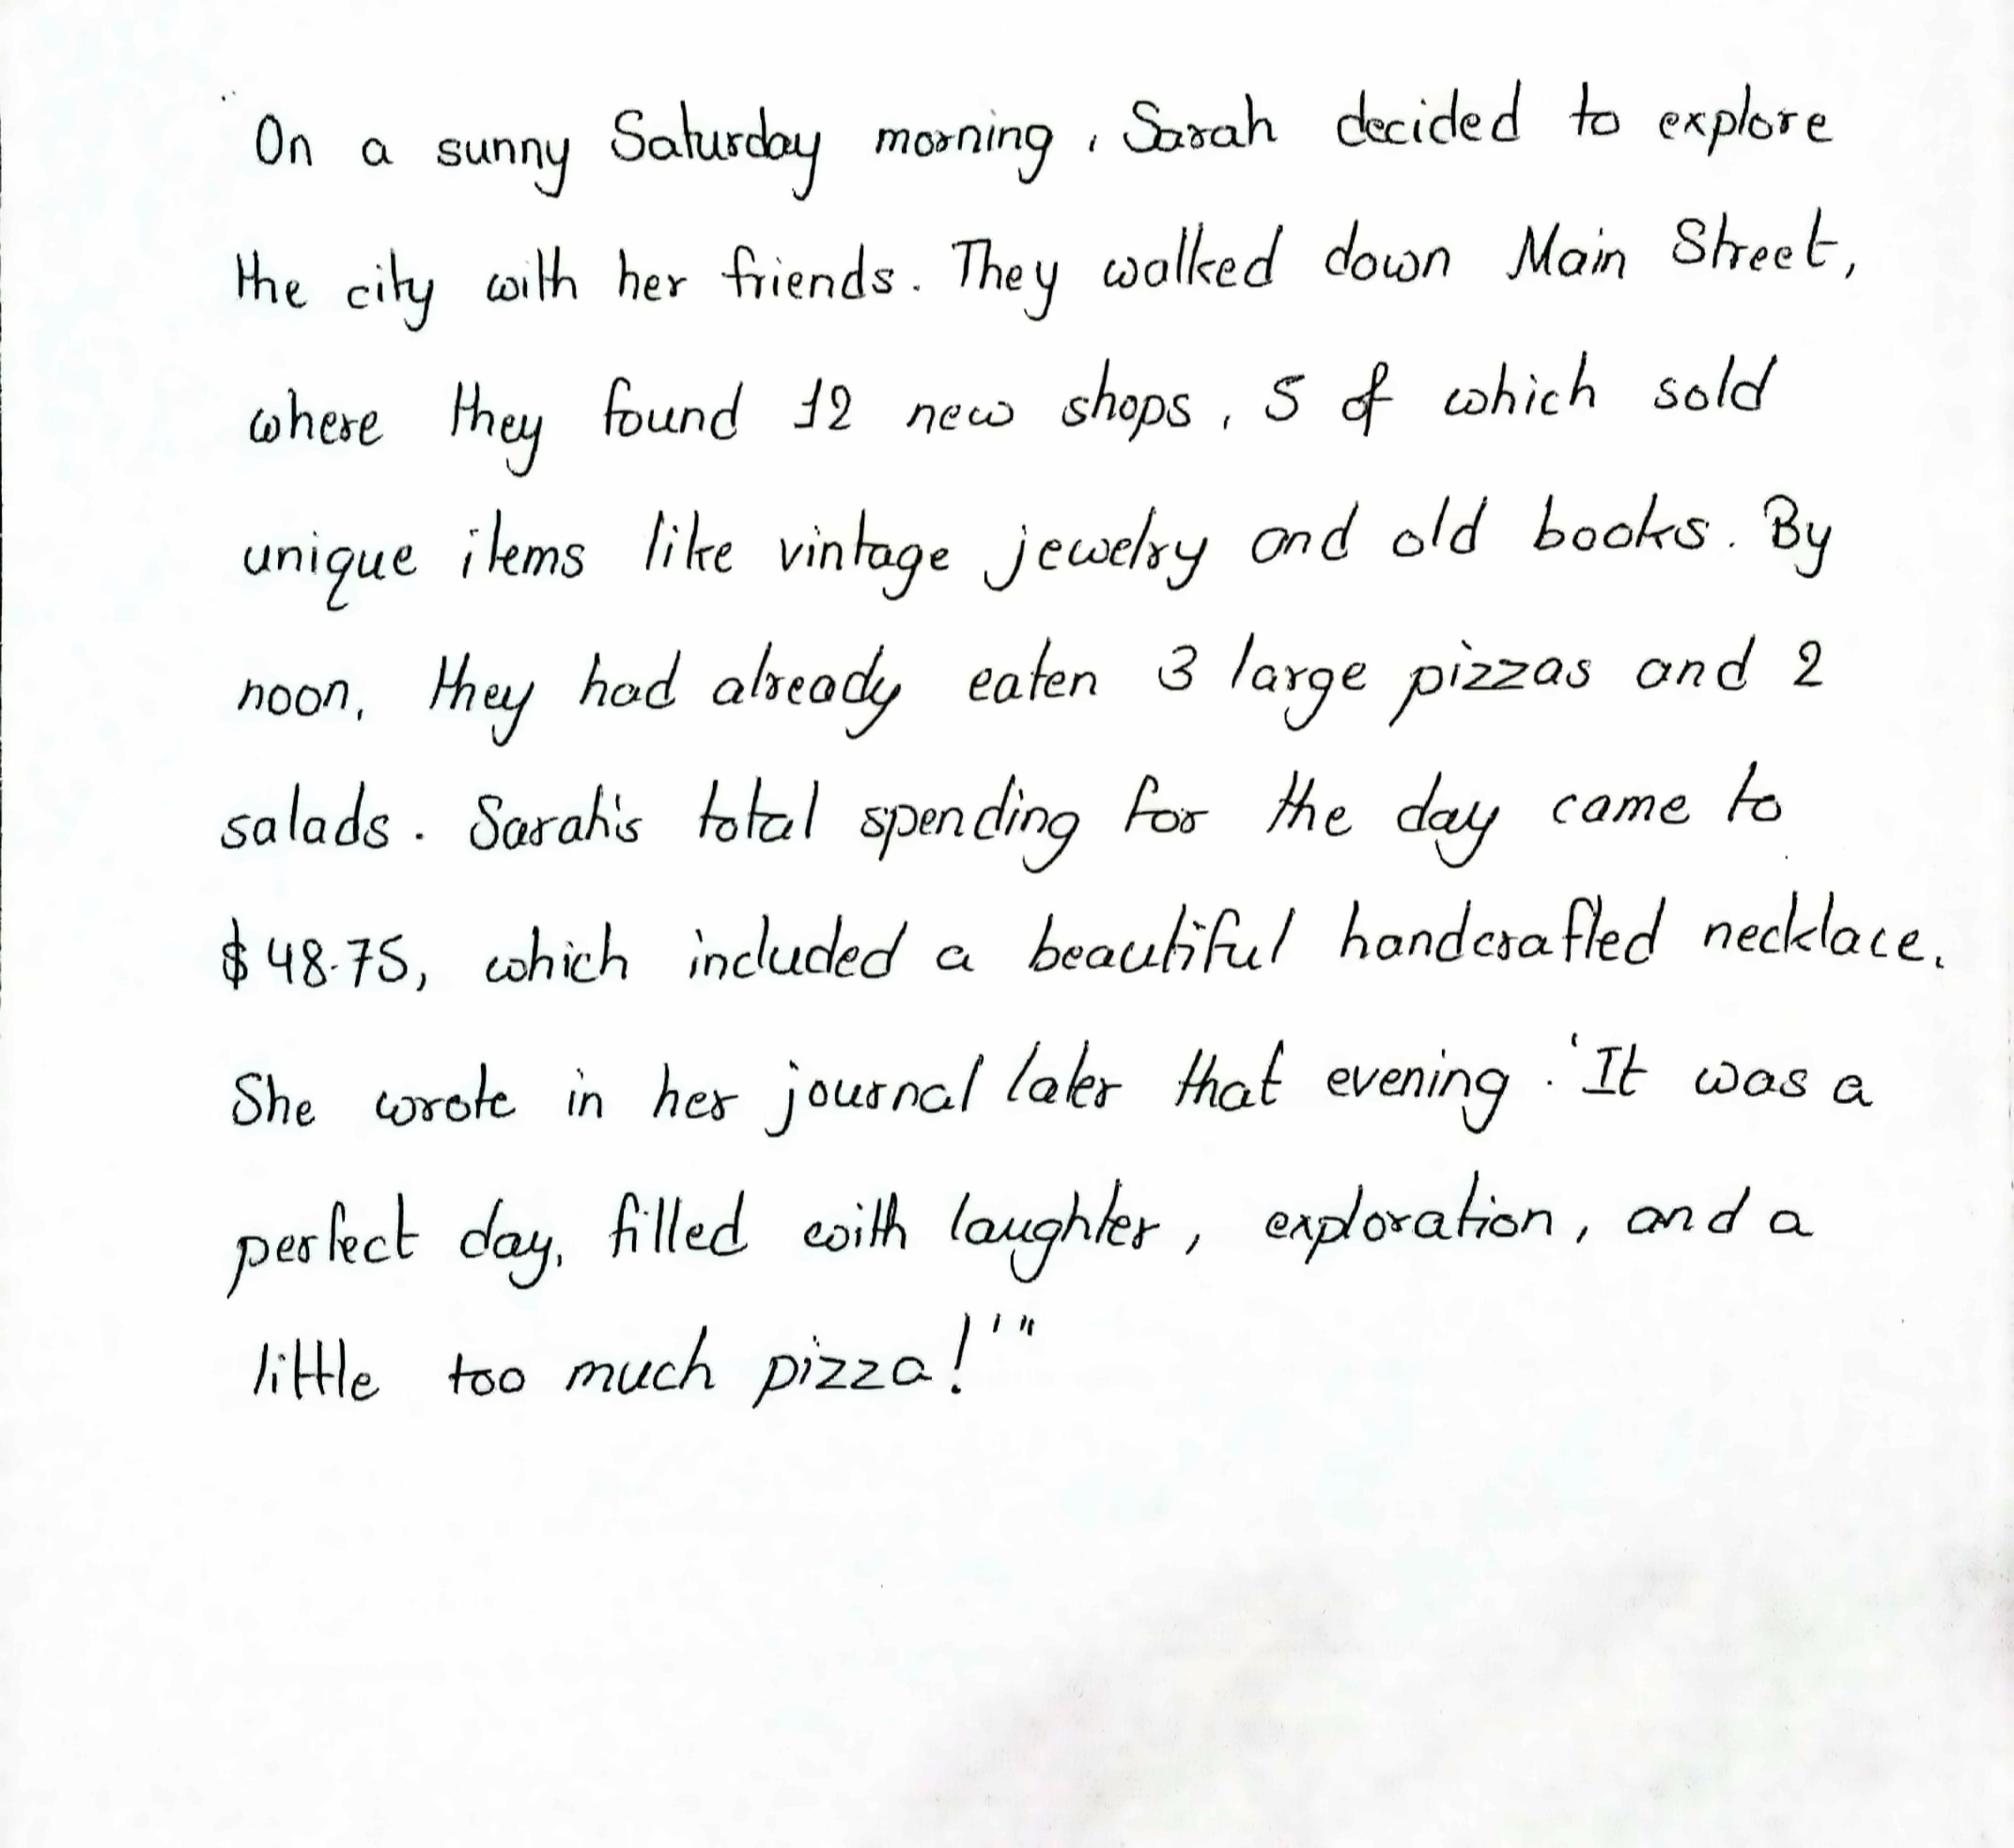 "On a sunny Saturday morning, Sarah decided to explore
the city with her friends. They walked down Main Street,
where they found 12 new shops, 5 of which sold
unique items like vintage jewelry and old books. By
noon, they had already eaten 3 large pizzas and 2
salads. Sarah's total spending for the day came to
$48.75, which included a beautiful handcrafted necklace.
She wrote in her journal later that evening. 'It was a
perfect day, filled with laughter, exploration, and a
little too much pizza!'"